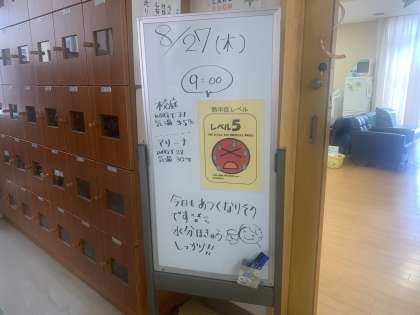 8/27(木)
9:00
校庭
WBGT 31
気温 35℃
アリーナ
WBGT 28
気温 30℃
熱中症レベル
レベル5
今日もあつくなりそう
です
水分ほきゅう
しっかり!!